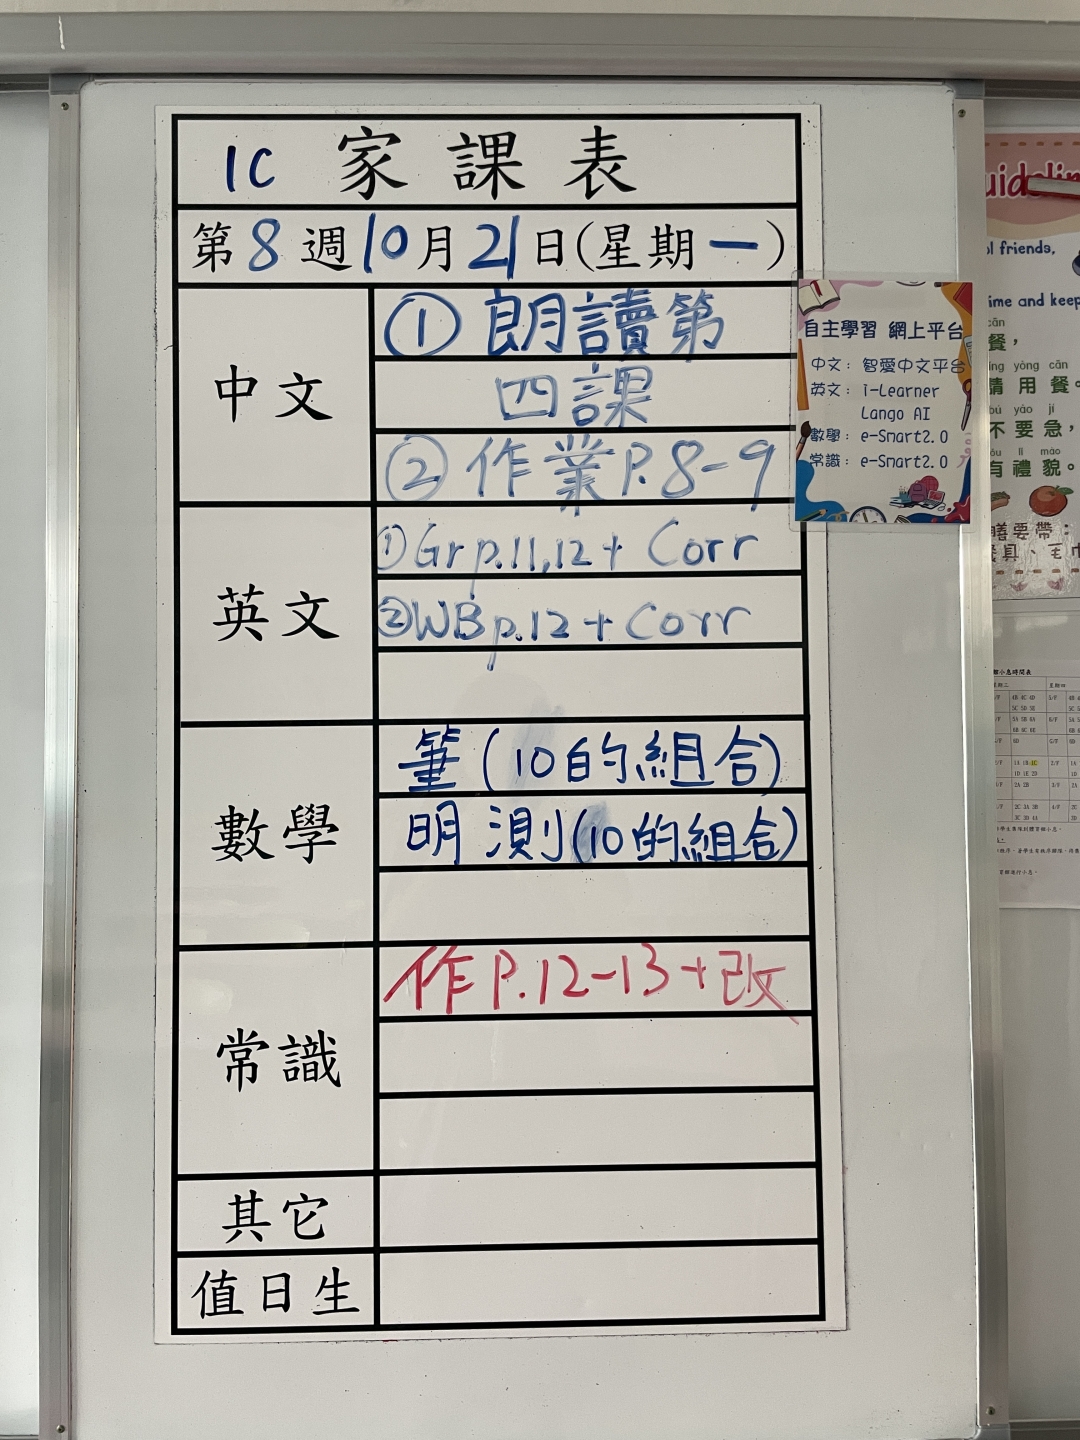 1C 家課表
第8週10月21日(星期一)
中文
①朗讀第
四課
②作業P.8-9
英文
①Gr p.11,12 + Corr
②WB p.12 + Corr
數學
筆(10的組合)
明測(10的組合)
常識
作P.12-13+改
其它
值日生
自主學習 網上平台
中文：智愛中文平台
英文：i-Learner
Lango AI
數學：e-Smart2.0
常識：e-Smart2.0
friends,
time and keep
cān
餐，
yòng cān
請用餐。
bù yào jí
不要急，
lǐ mào
有禮貌。
膳要帶：
餐具、毛巾
小息時間表